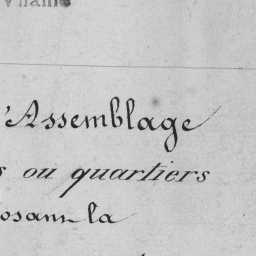 'Assemblage
s ou quartiers
osant la